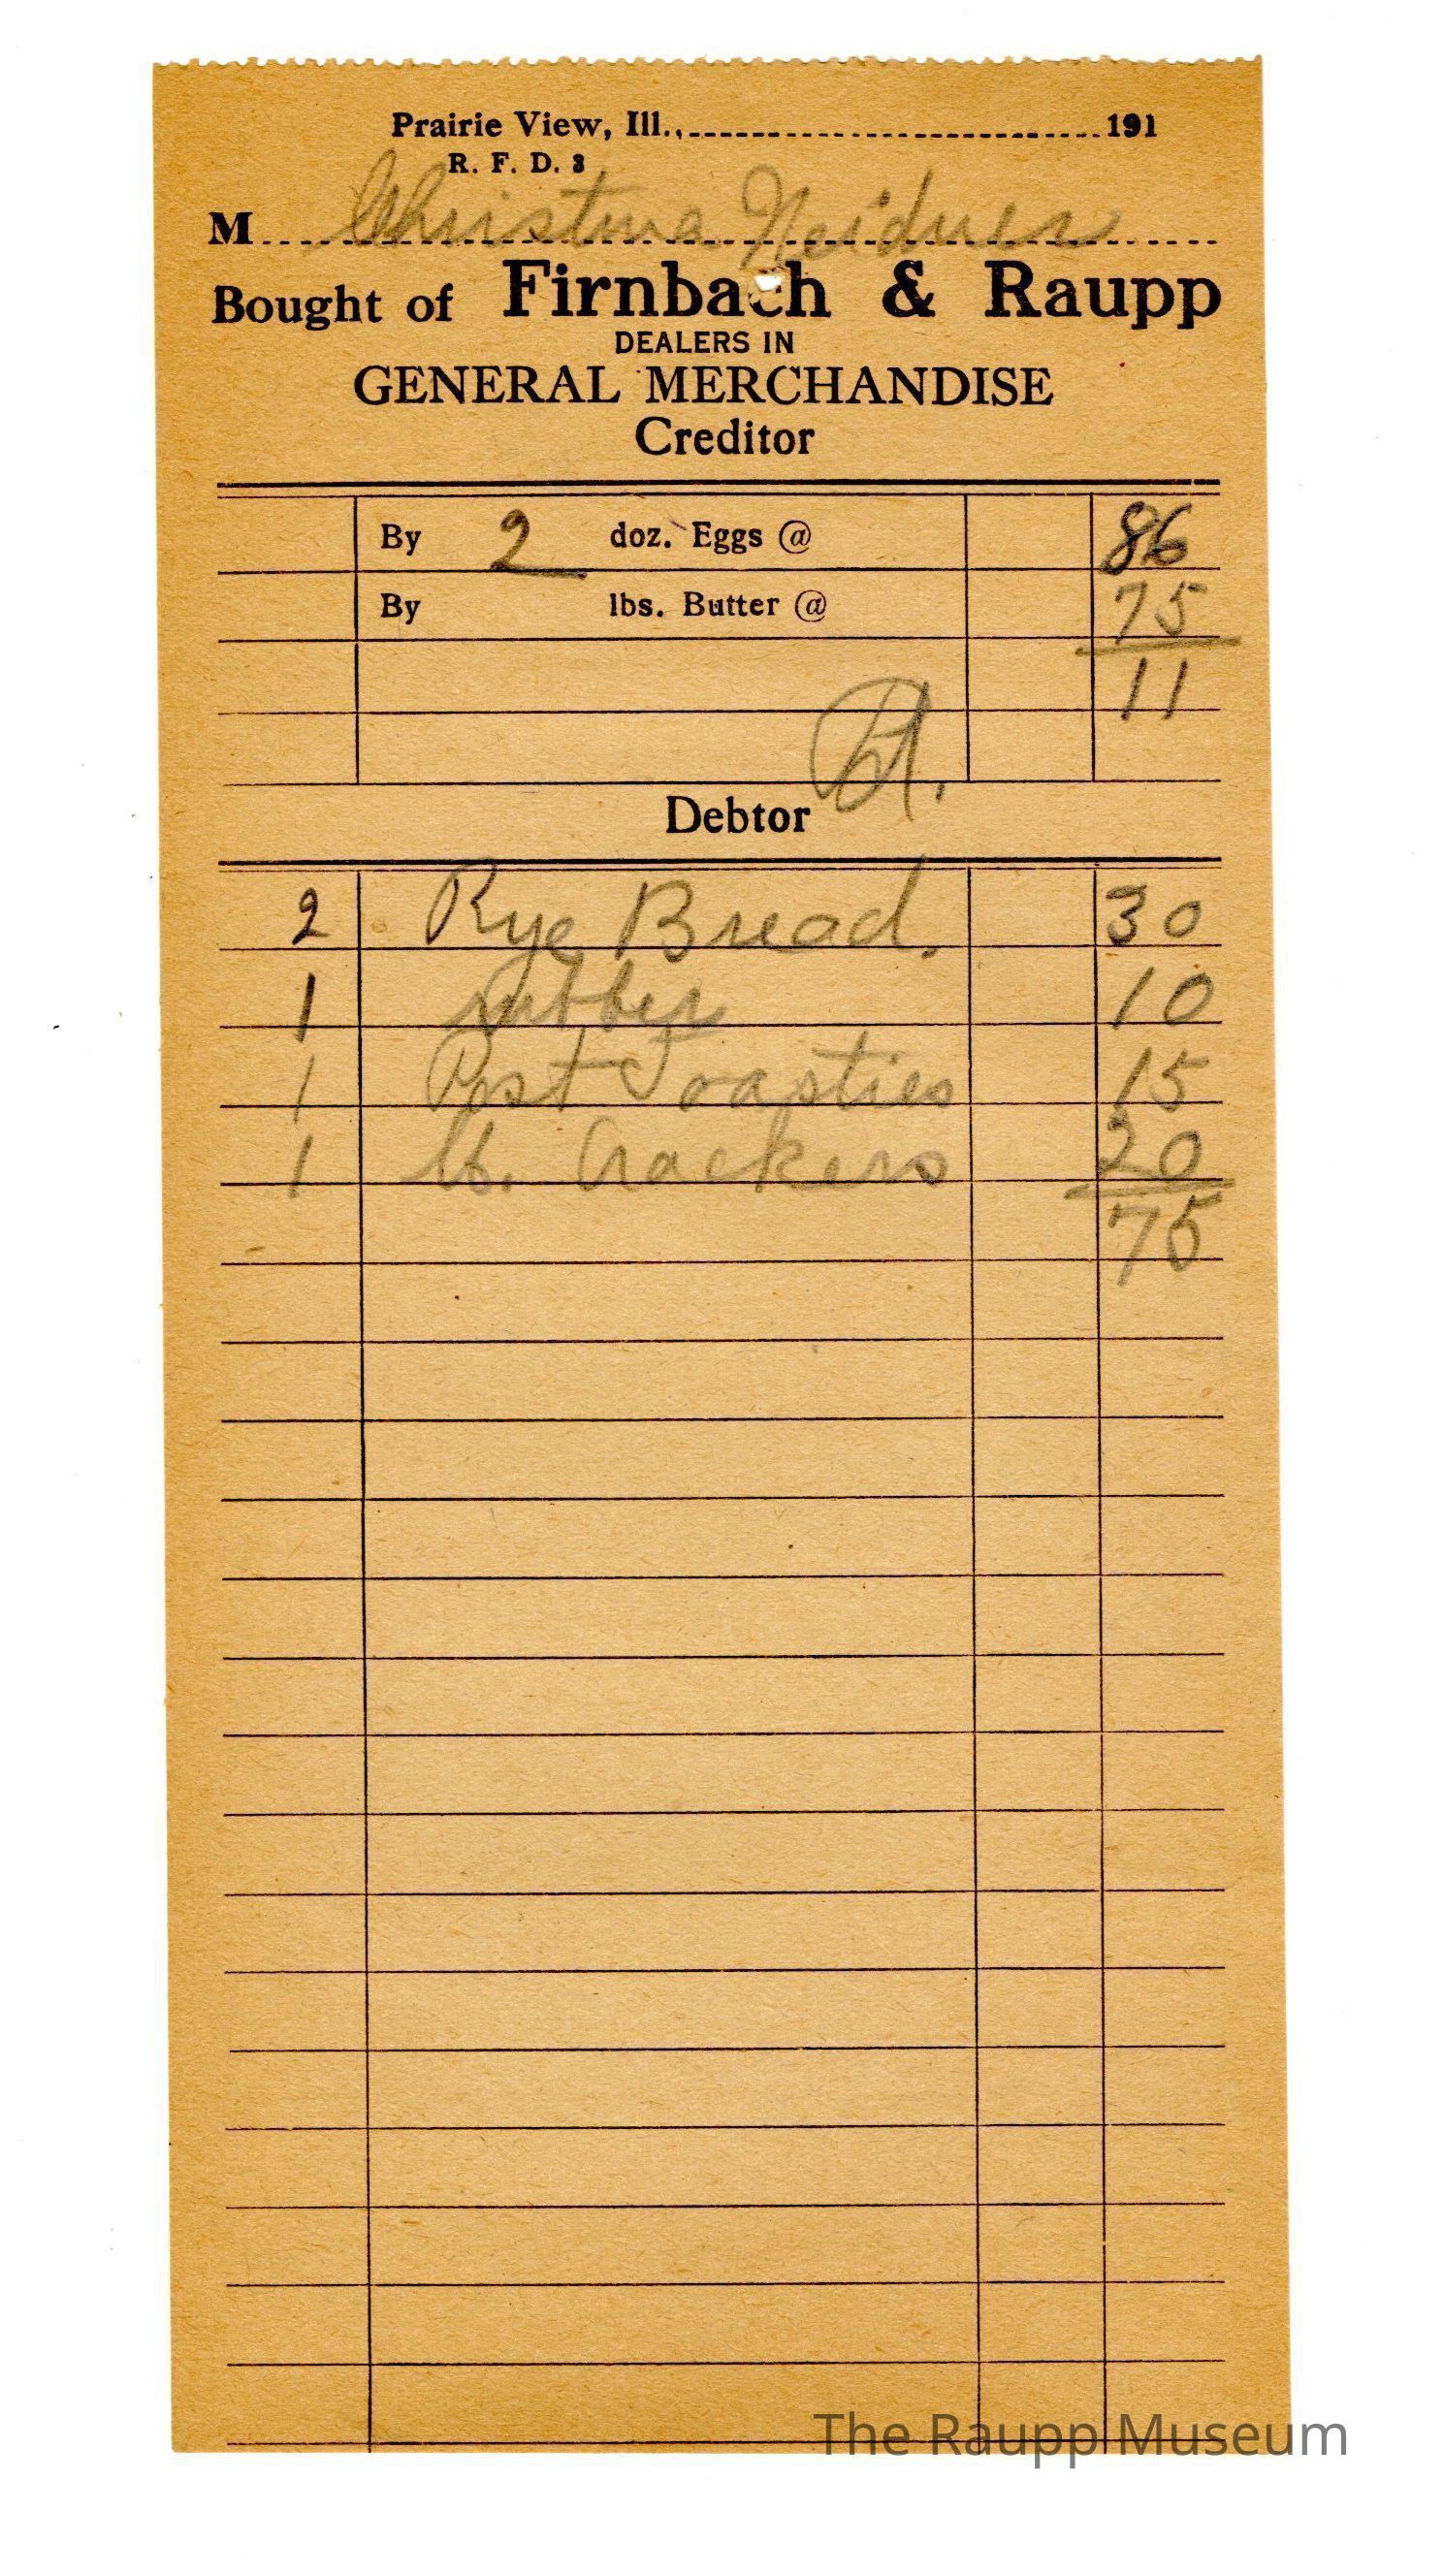 Prairie View, Ill., 191
R. F. D. 3
M Christina Neidner
Bought of Firnbach & Raupp
DEALERS IN
GENERAL MERCHANDISE
Creditor
By 2 doz. Eggs @ 86
By lbs. Butter @ 75
11
Debtor
2 Rye Bread. 30
1 rubber 10
1 Post Toasties 15
1 lb. Crackers 20
75
The Raupp Museum